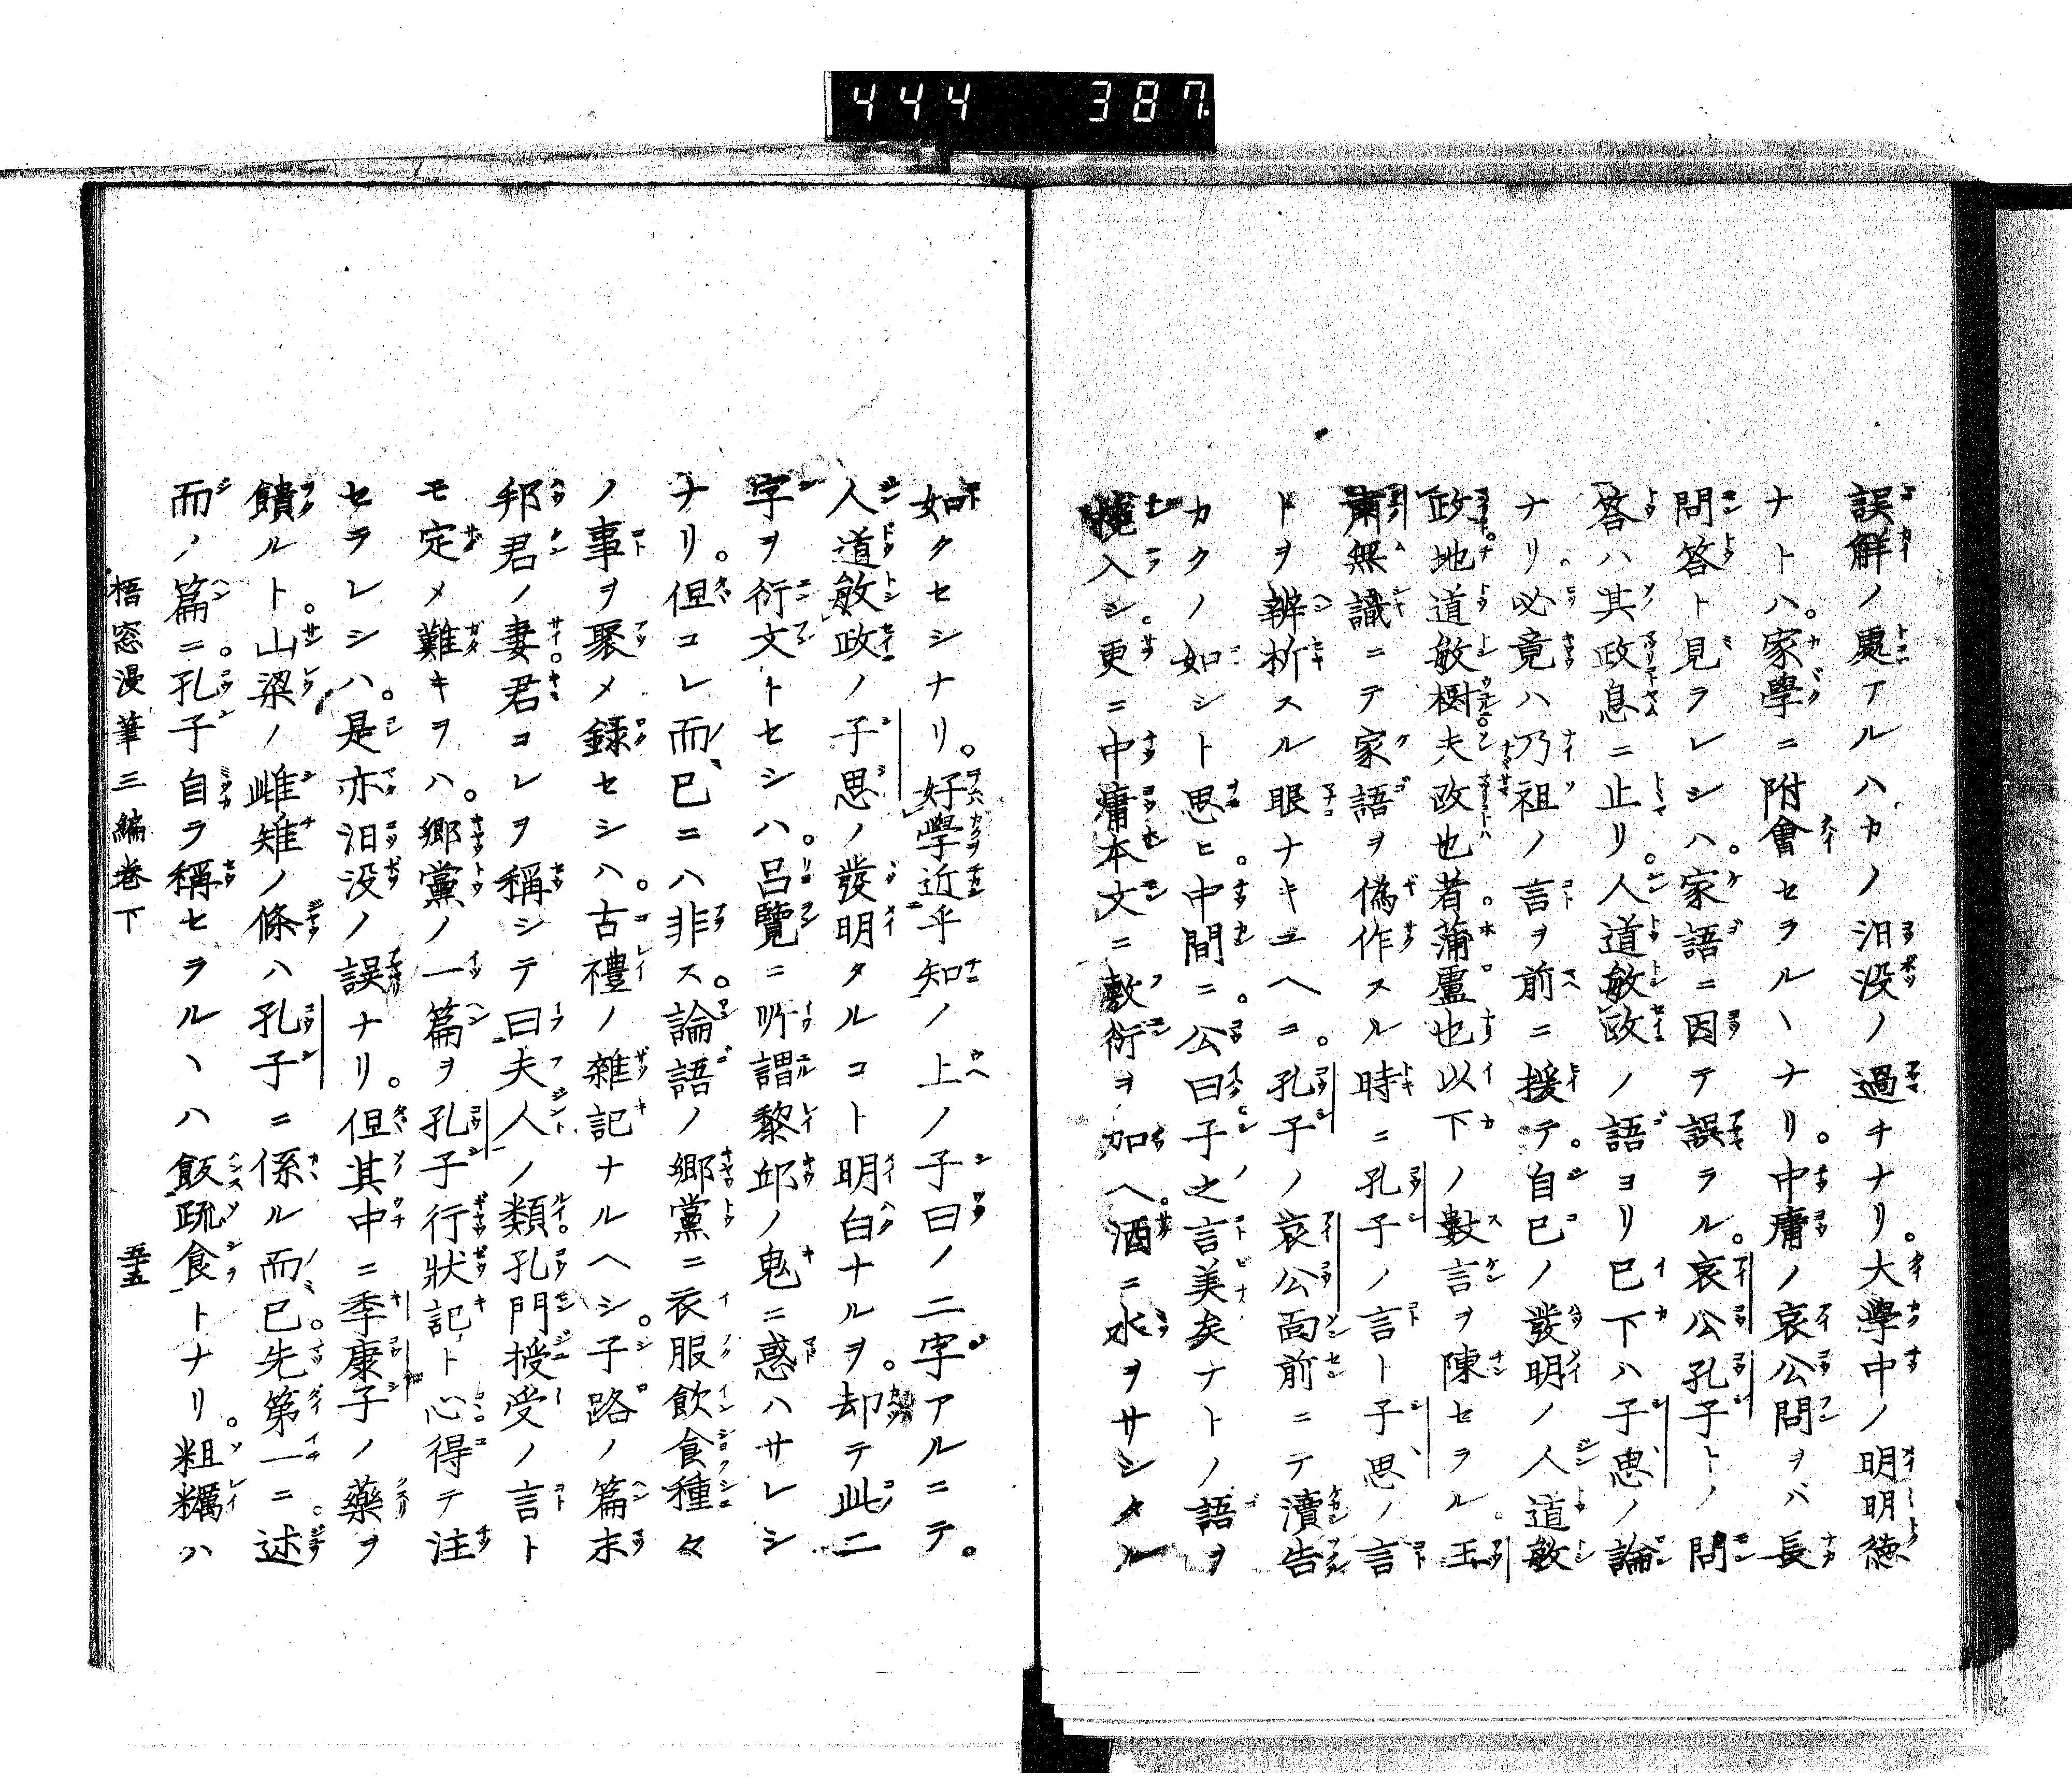 444 387
誤解ノ處アルハカノ汨没ノ過チナリ。大學中ノ明明徳
ナトハ。家學ニ附會セラルヽナリ。中庸ノ哀公問ヲバ長
問答ト見ラレシハ。家語ニ因テ誤ラル。哀公孔子トノ問
答ハ其政息ニ止リ。人道敏政ノ語ヨリ已下ハ子思ノ論
ナリ。必竟ハ乃祖ノ言ヲ前ニ援テ。自己ノ發明ノ人道敏
政。地道敏樹。夫政也者。蒲盧也以下ノ數言ヲ陳セラル。王
肅無識ニテ家語ヲ偽作スル時ニ孔子ノ言ト子思ノ言
トヲ辨析スル眼ナキユヘニ。孔子ノ哀公面前ニテ瀆告
カクノ如シト思ヒ。中間ニ。公曰子之言美矣ナトノ語ヲ
攙入シ。更ニ中庸本文ニ敷衍ヲ加ヘ。酒ニ水ヲサシタル
如クセシナリ。好學近乎知ノ上ノ子曰ノ二字アルニテ。
人道敏政ノ子思ノ發明タルコト明白ナルヲ。却テ此二
字ヲ衍文トセシハ。呂覽ニ所謂黎邱ノ鬼ニ惑ハサレシ
ナリ。但コレ而已ニハ非ス。論語ノ郷黨ニ衣服飲食種々
ノ事ヲ聚メ録セシハ。古禮ノ雜記ナルヘシ。子路ノ篇末
邦君ノ妻。君コレヲ稱シテ曰夫人ノ類。孔門授受ノ言ト
モ定メ難キヲハ。郷黨ノ一篇ヲ孔子行狀記ト心得テ注
セラレシハ。是亦汨没ノ誤ナリ。但其中ニ季康子ノ藥ヲ
饋ルト。山梁ノ雌雉ノ條ハ孔子ニ係ル而已。先第一ニ。述
而ノ篇ニ。孔子自ラ稱セラルヽハ飯疏食トナリ。粗糲ハ
梧窓漫筆三編巻下 五十五